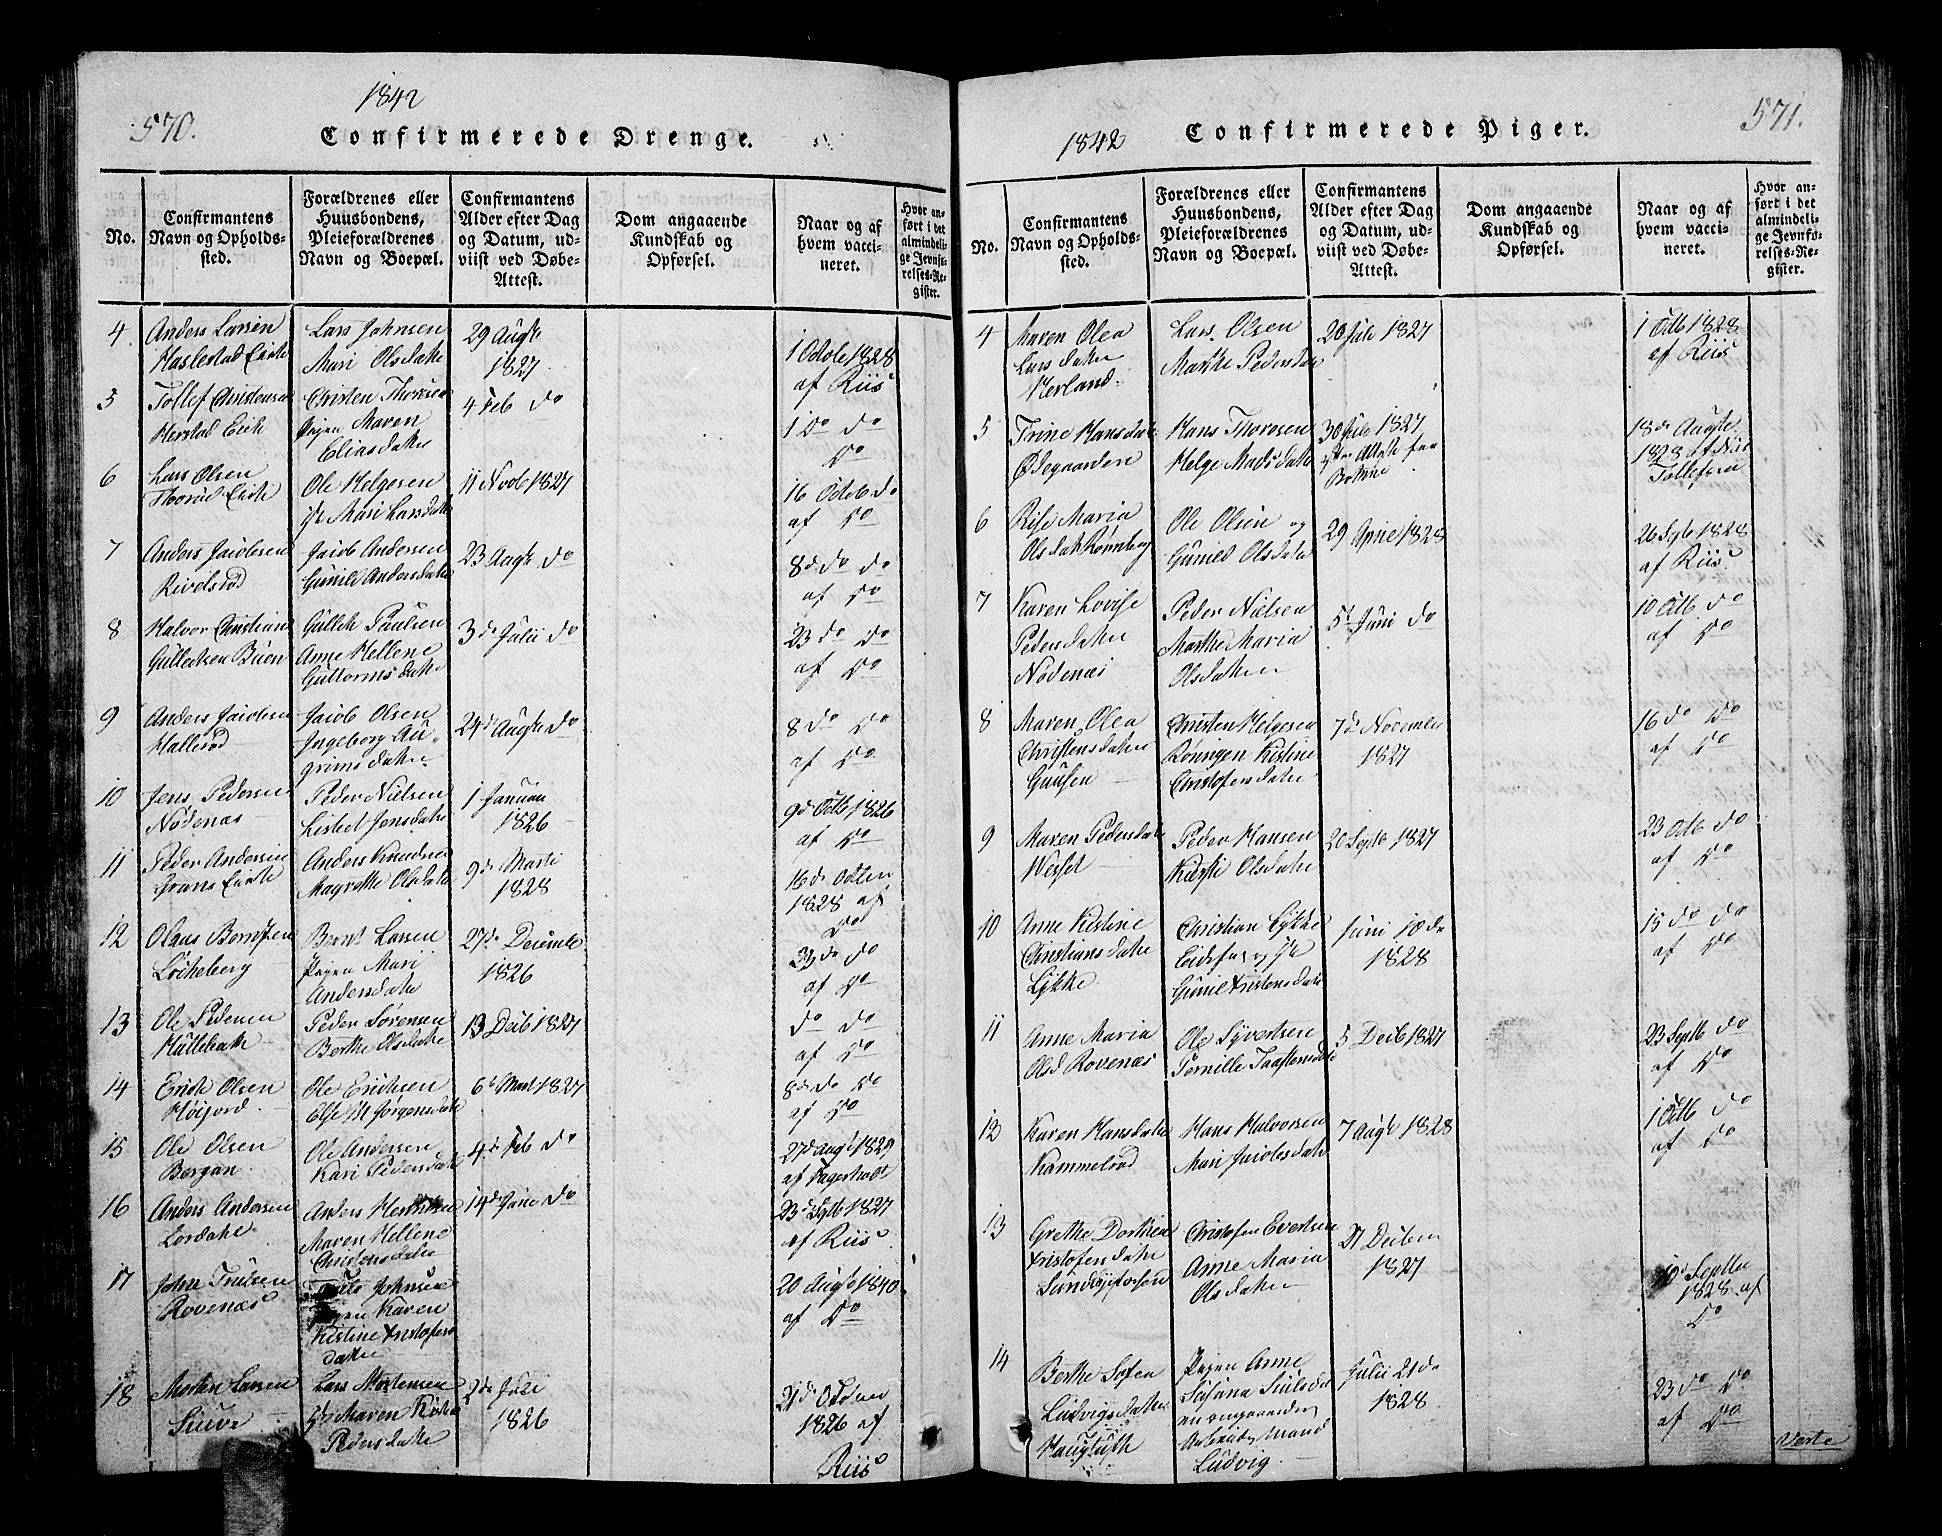 570.
1842
Confirmerede Drenge.
No.
Confirmantens
Navn og Opholds-
sted.
Forældrenes eller
Huusbondens,
Pleieforældrenes
Navn og Boepæl.
Confirmantens
Alder efter Dag
og Datum, ud-
viist ved Døbe-
Attest.
Dom angaaende
Kundskab og
Opførsel.
Naar og af
hvem vacci-
neret.
Hvor an-
ført i det
almindeli-
ge Jevnfø-
relses-Re-
gister.
4
Anders Larsen
Haslestad Eiete
Lars Johnsen
Mari Olsdatte
29 Augt
1827
1 Octbe 1828
af Riis
5
Tollef Christensen
Herstad Eiete
Christen Thoresen
Pigen Maren
Eliasdatte
4 Feb do
1 do do
do
6
Lars Olsen
Thorud Eiete
Ole Helgesen
Mari Larsdatte
11 Novb 1827
16 Octob do
af do
7
Anders Jacobsen
Rivelsrød
Jacob Andersen
Gunild Andersdatte
23 Augt do
8d do do
af do
8
Halvor Christian
Gulleksen Buen
Gullek Paulsen
Anne Hellene
Guttormsdatte
3d Julii do
23 do do
af do
9
Anders Jacobsen
Hallerød
Jacob Olsen
Ingeborg Au-
grimsdatte
24d Augte do
8 do do
af do
10
Jens Pedersen
Nødenæs
Peder Nielsen
Lisbet Jensdatte
1 Januar
1826
9d Octb 1826
af do
11
Peder Andersen
Grans Eiete
Anders Knudsen
Magrethe Olsdatte
9de Marti
1828
16d Octben
1828 af
do
12
Olaus Berntsen
Løcheberg
Bernt Larsen
Pigen Mari
Andersdatte
27de Decembe
1826
do do
af do
13
Ole Pedersen
Hullebæk
Peder Sørensen
Berthe Olsdatte
13 Decb 1827
do do
af do
14
Erich Olsen
Høijord
Ole Erichsen
Else M Jørgensdatte
6t Mart 1827
8d do do
af do
15
Ole Olsen
Bergan
Ole Andersen
Kari Pedersdatte
4d Feb do
27d Augt 1829
af Fagerholt
16
Anders Andersen
Lørdahl
Anders
Maren Hellene
Christensdatte
14de do
23d Sptb 1827
af Riis
17
John Trulsen
Rovenæs
Truls Johnsen
Pigen Karen
Kistine Xristofers
datte
20 Augt 1840
af do
18
Morten Larsen
Lars Mortensen
Maren
Pedersdatte
2de Juli
1826
21d Octben
1826 af
Riis
571.
1842
Confirmerede Piger.
No.
Confirmantens
Navn og Opholds-
sted.
Forældrenes eller
Huusbondens,
Pleieforældrenes
Navn og Boepæl.
Confirmantens
Alder efter Dag
og Datum, ud-
viist ved Døbe-
Attest.
Dom angaaende
Kundskab og
Opførsel.
Naar og af
hvem vacci-
neret.
Hvor an-
ført i det
almindeli-
ge Jevnfø-
relses-Re-
gister.
4
Maren Olea
Larsdatte
Herland
Lars Olsen
Marthe Pedersdat
20 Juli 1827
1 Octb 1828
af Riis
5
Trine Hansdatte
Ødegaarden
Hans Thoresen
Helge Madsdatte
30 Juli 1827
Attest fra
Botne
18de Augte
1828 af
Tollefsen
6
Rise Maria
Olsdatte Rønneberg
Ole Olsen og
Gunild Olsdatte
29 April 1828
26 Sptb 1828
af Riis
7
Karen Lovise
Pedersdatte
Nødenæs
Peder Nielsen
Marthe Maria
Olsdatte
5t Juni do
10 Octb do
af do
8
Maren Olea
Christensdatte
Gausen
Christen Helgesen
Røningen Kistine
Christofersdatte
7de Novembe
1827
16 do do
af do
9
Maren Pedersdatte
Peder Hansen
Kirsti Olsdatte
20 Septb 1827
23 Octb do
af do
10
Anne Kistine
Christiansdatte
Lykke
Christian Lykke
Gunild Xristensdatte
Juni 10 de
1828
15 do do
af do
11
Anne Maria
Olsd Rovenæs
Ole Syvertsen
Pernille
5 Decb 1827
23 Septb do
af do
12
Karen Hansdatte
Kammelrød
Hans Halvorsen
Mari Jacobsdatte
7 Augt 1828
1 Octb do
af do
13
Grethe Dorthea
Xristofersdatte
Christofer Evertsen
Anne Maria
Olsdatte
21 Decben
1827
10d Septbe
1828 af
do
14
Berthe Sofea
Ludvigsdatte
Haugtuft
Pigen Anne
Susana
Mand
Ludvig
Julii 21 de
1828
23 do do
af do
Verte